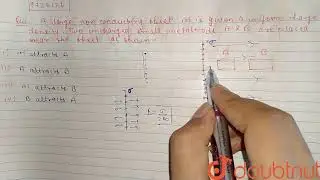 Que: A large non conducting sheet M is given a uniform charge
density. Two uncharged small metal rods A & B are placed
near the sheet as shown:
i) M attracts A
ii) M attracts B
iii) A attracts B
iv) B attracts A
σ
A
B
σ
E =
doubtnut